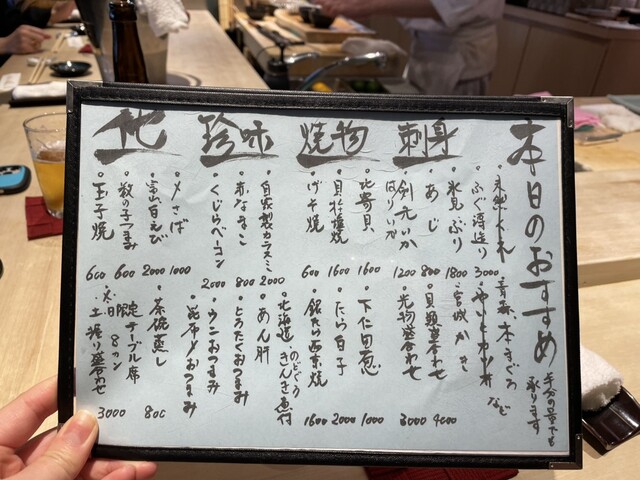 本日のおすすめ
半分の量でも
承ります
刺身
ふぐ薄造り 3000
氷見ぶり 1800
あじ 800
剣先いか
はりいか 1200
青森 本まぐろ
など
宮城 かき
貝類盛合わせ 4000
光物盛合わせ 3000
焼物
北寄貝 1600
貝柱塩焼 1600
げそ焼 600
下仁田葱 1000
たら白子 2000
銀たら西京焼 1600
珍味
自家製カラスミ 2000
赤なまこ 800
くじらベーコン 2000
北海道 のどぐろ
きんき煮付
あん肝
とろたくおつまみ
ウニおつまみ
昆布〆おつまみ
他
〆さば 1000
富山白えび 2000
数の子つまみ 600
玉子焼 600
茶碗蒸し 800
限定テーブル席
8カン
土握り盛合わせ 3000